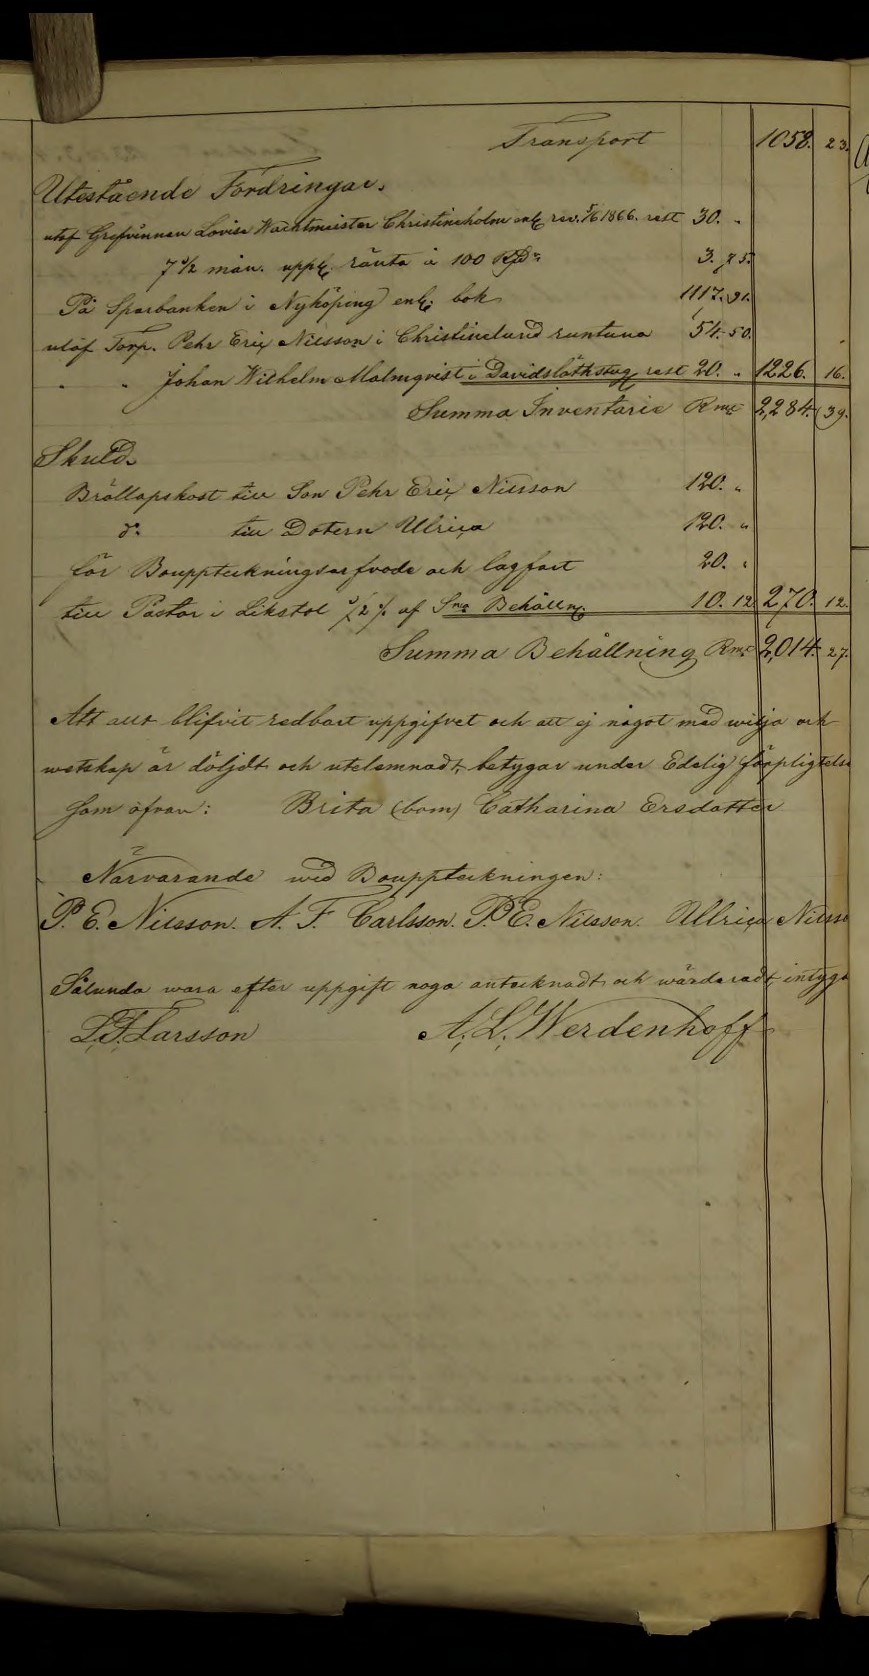 Transport 1058. 23.
Utestående Fordringar.
utaf Grefvinnan Lovisa Wachtmeister Christineholm enl. rev. 5/6 1866. rest 30. "
7 1/2 mån. uppl. ränta å 100 Rdr 3. 75.
På Sparbanken i Nyköping enl. bok 1117. 91.
utaf Torp. Pehr Eric Nilsson i Christinelund runtuna 54. 50.
" " Johan Wilhelm Malmqvist i rest 20. " 1226. 16.
Summa Inventarie Rmt 2,284. 39.
Skuld.
Bröllopskost till Son Pehr Eric Nilsson 120. "
do. till Dotern Ulrica 120. "
för Bouppteckningsarfvode och lagfart 20. "
till Pastor i Likstol 1/2 % af Sma Behålln. 10. 12 270. 12.
Summa Behållning Rmt 2,014. 27.
Att allt blifvit redbart uppgifvet och att ej något med wilja och
wetskap är döljdt och utelemnadt, betygar under Edelig förpligtelse
Som ofvan: Brita (bom) Catharina Ersdotter
Närvarande wid Bouppteckningen:
P. E. Nilsson. A. F. Carlsson. P. E. Nilsson. Ullrica Nilsso
Sålunda wara efter uppgift noga antecknadt och wärderadt, intyga
L. F. Larsson A. L. Werdenhoff